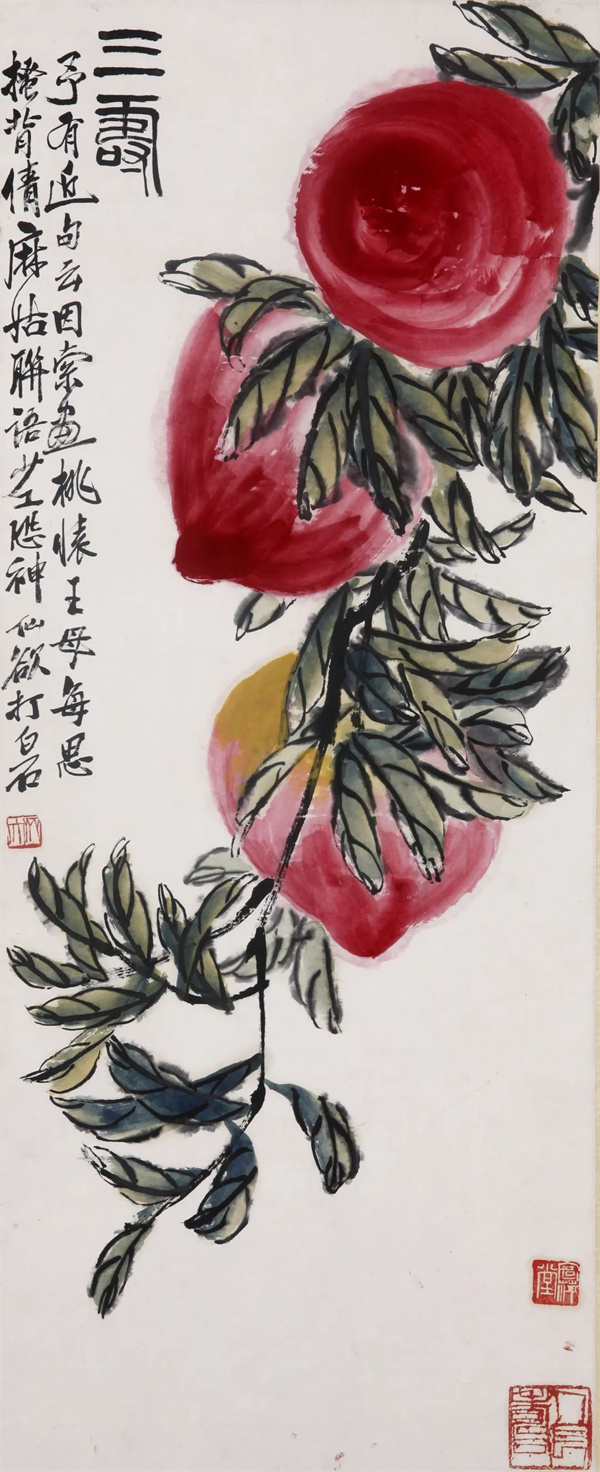 三壽
予有近句云因索畫桃懷王母每思
搔背倩麻姑聯語少工恐神仙欲打白石